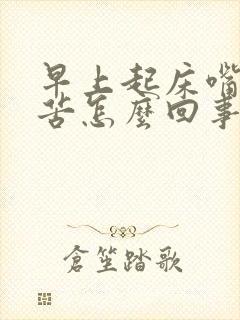 早上起床嘴
苦怎麽回事
倉笙踏歌